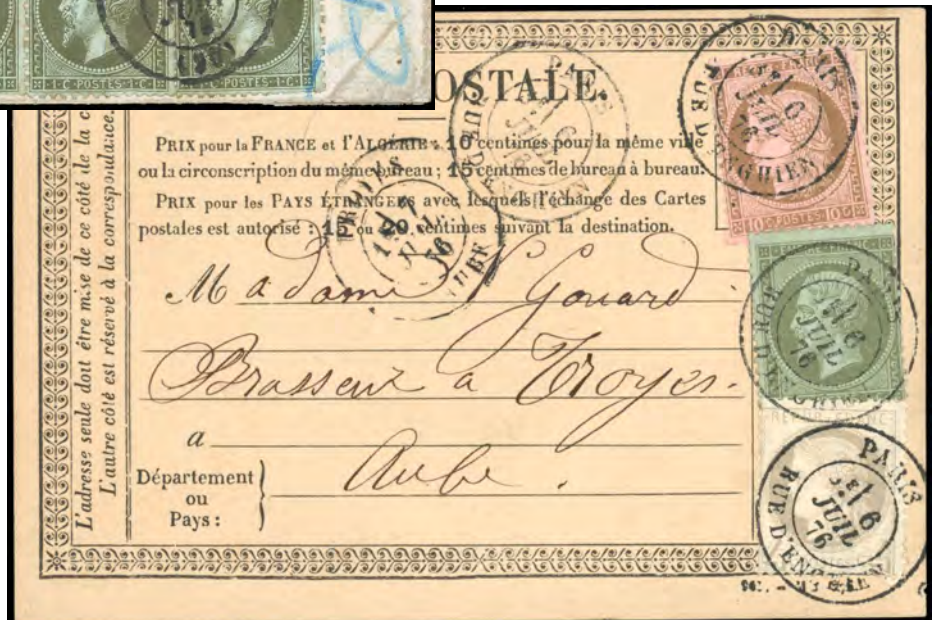 1·C·POSTES·1·C
1·C·POSTES·1·C
76
OSTALE.
PRIX pour la FRANCE et l'ALGÉRIE : 10 centimes pour la même ville
ou la circonscription du même bureau ; 15 centimes de bureau à bureau.
PRIX pour les PAYS ÉTRANGERS avec lesquels l'échange des Cartes
postales est autorisé : 15 ou 20 centimes suivant la destination.
L'adresse seule doit être mise de ce côté de la c
L'autre côté est réservé à la correspondance.
Madame Gouard
Brasseur a Troyes.
a
Aube.
Département
ou
Pays :
PARIS
RUE D'ENGHIEN
6
JUIL
76
TROYES
76
PARIS
RUE D'ENGHIEN
6
JUIL
76
10 C·POSTES·10 C
PARIS
RUE D'ENGHIEN
6
JUIL
76
PARIS
RUE D'ENGHIEN
6
JUIL
76